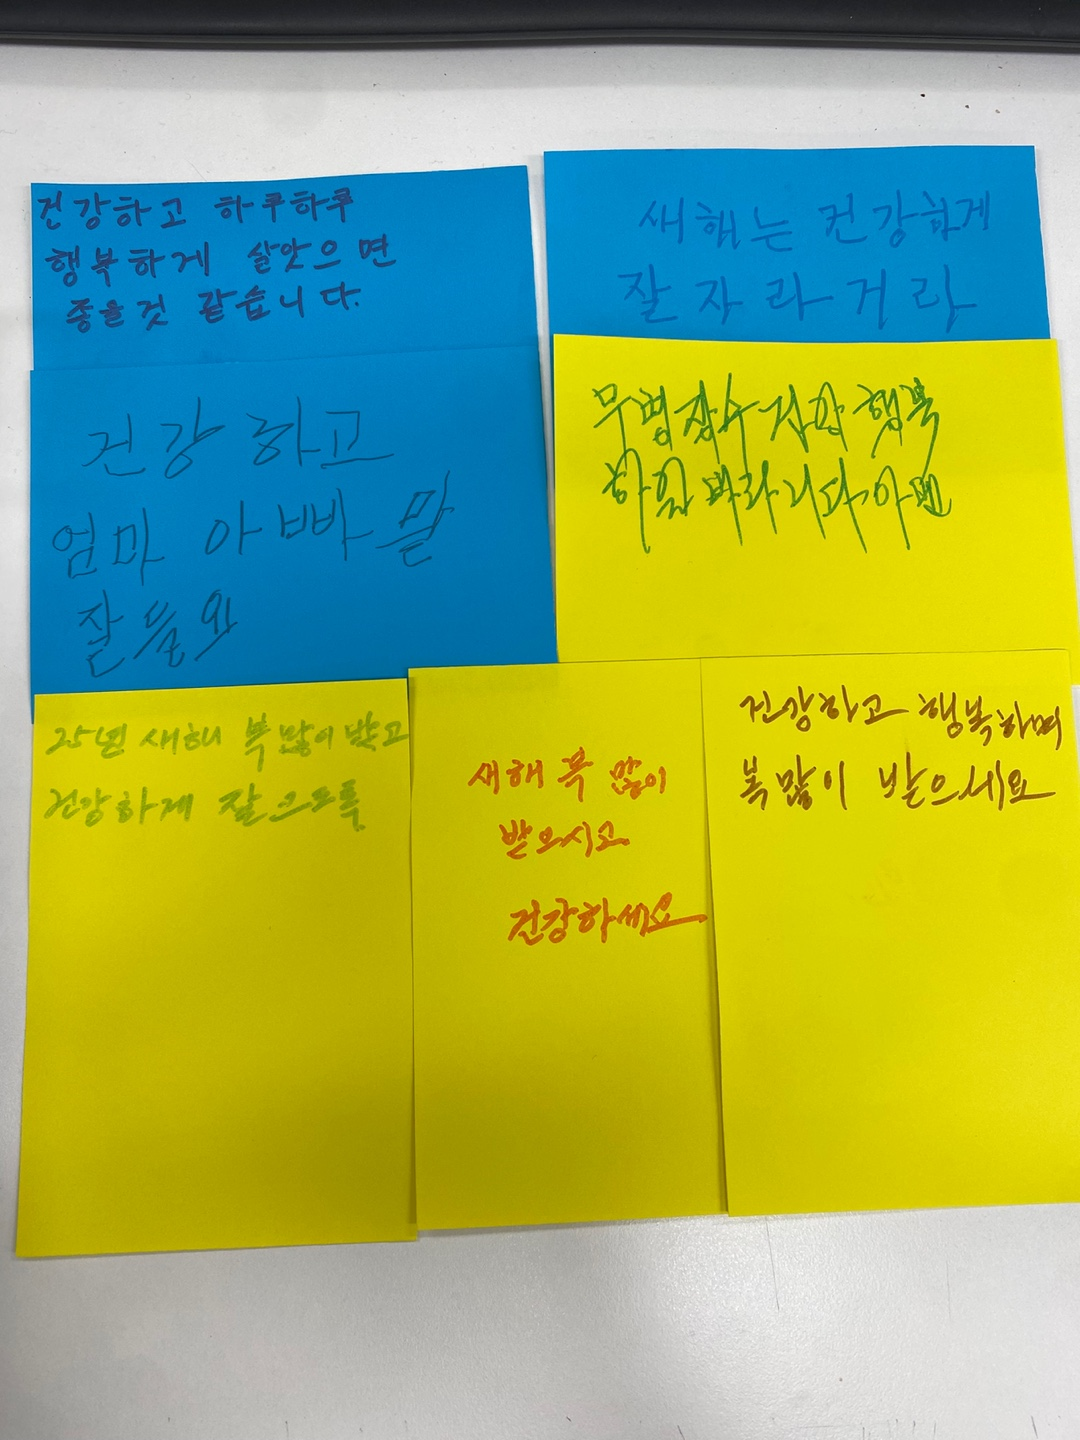 건강하고 하루하루
행복하게 살앗으면
좋을것 같습니다.
새해는 건강하게
잘 자라거라
건강하고
엄마 아빠 말
잘 들어
무병장수 행복
바라니다 아멘
25년 새해 복 많이 받고
건강하게
새해 복 많이
받으시고
건강하세요
건강하고 행복하며
복 많이 받으세요